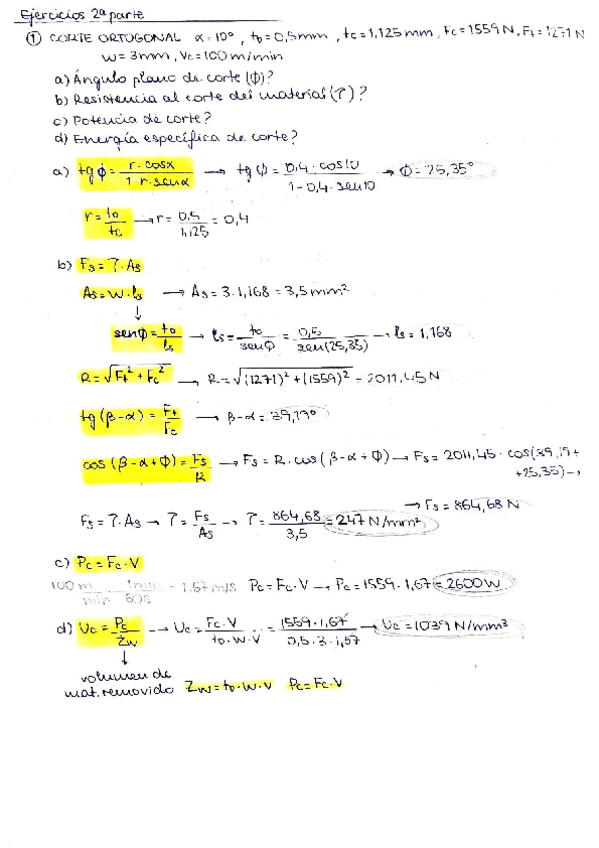 Ejercicios 2ª parte
① CORTE ORTOGONAL α = 10°, to = 0,5mm, tc = 1,125mm, Fc = 1559 N, Ft = 1271 N
w = 3mm, Vc = 100 m/min
a) Ángulo plano de corte (ϕ)?
b) Resistencia al corte del material (τ)?
c) Potencia de corte?
d) Energía específica de corte?
a) tgϕ = r·cosα / 1-r·senα → tgϕ = 0,4·cos10 / 1-0,4·sen10 → ϕ = 25,35°
r = to/tc → r = 0,5/1,125 = 0,4
b) Fs = τ·As
As = w·ls → As = 3·1,168 = 3,5mm²
↓
senϕ = to/ls → ls = to/senϕ = 0,5/sen(25,35) → ls = 1,168
R = √Ft² + Fc² → R = √(1271)² + (1559)² = 2011,45 N
tg(β-α) = Ft/Fc → β-α = 39,19°
cos(β-α+ϕ) = Fs/R → Fs = R·cos(β-α+ϕ) → Fs = 2011,45·cos(39,19+
+25,35) →
→ Fs = 864,68 N
Fs = τ·As → τ = Fs/As → τ = 864,68/3,5 = 247 N/mm²
c) Pc = Fc·V
100 m/min · 1min/60s = 1.67 m/s Pc = Fc·V → Pc = 1559·1,67 = 2600W
d) Uc = Pc/Zw → Uc = Fc·V/to·w·V = 1559·1,67/0,5·3·1,67 → Uc = 1039 N/mm²
↓
volumen de
mat. removido Zw = to·w·V Pc = Fc·V